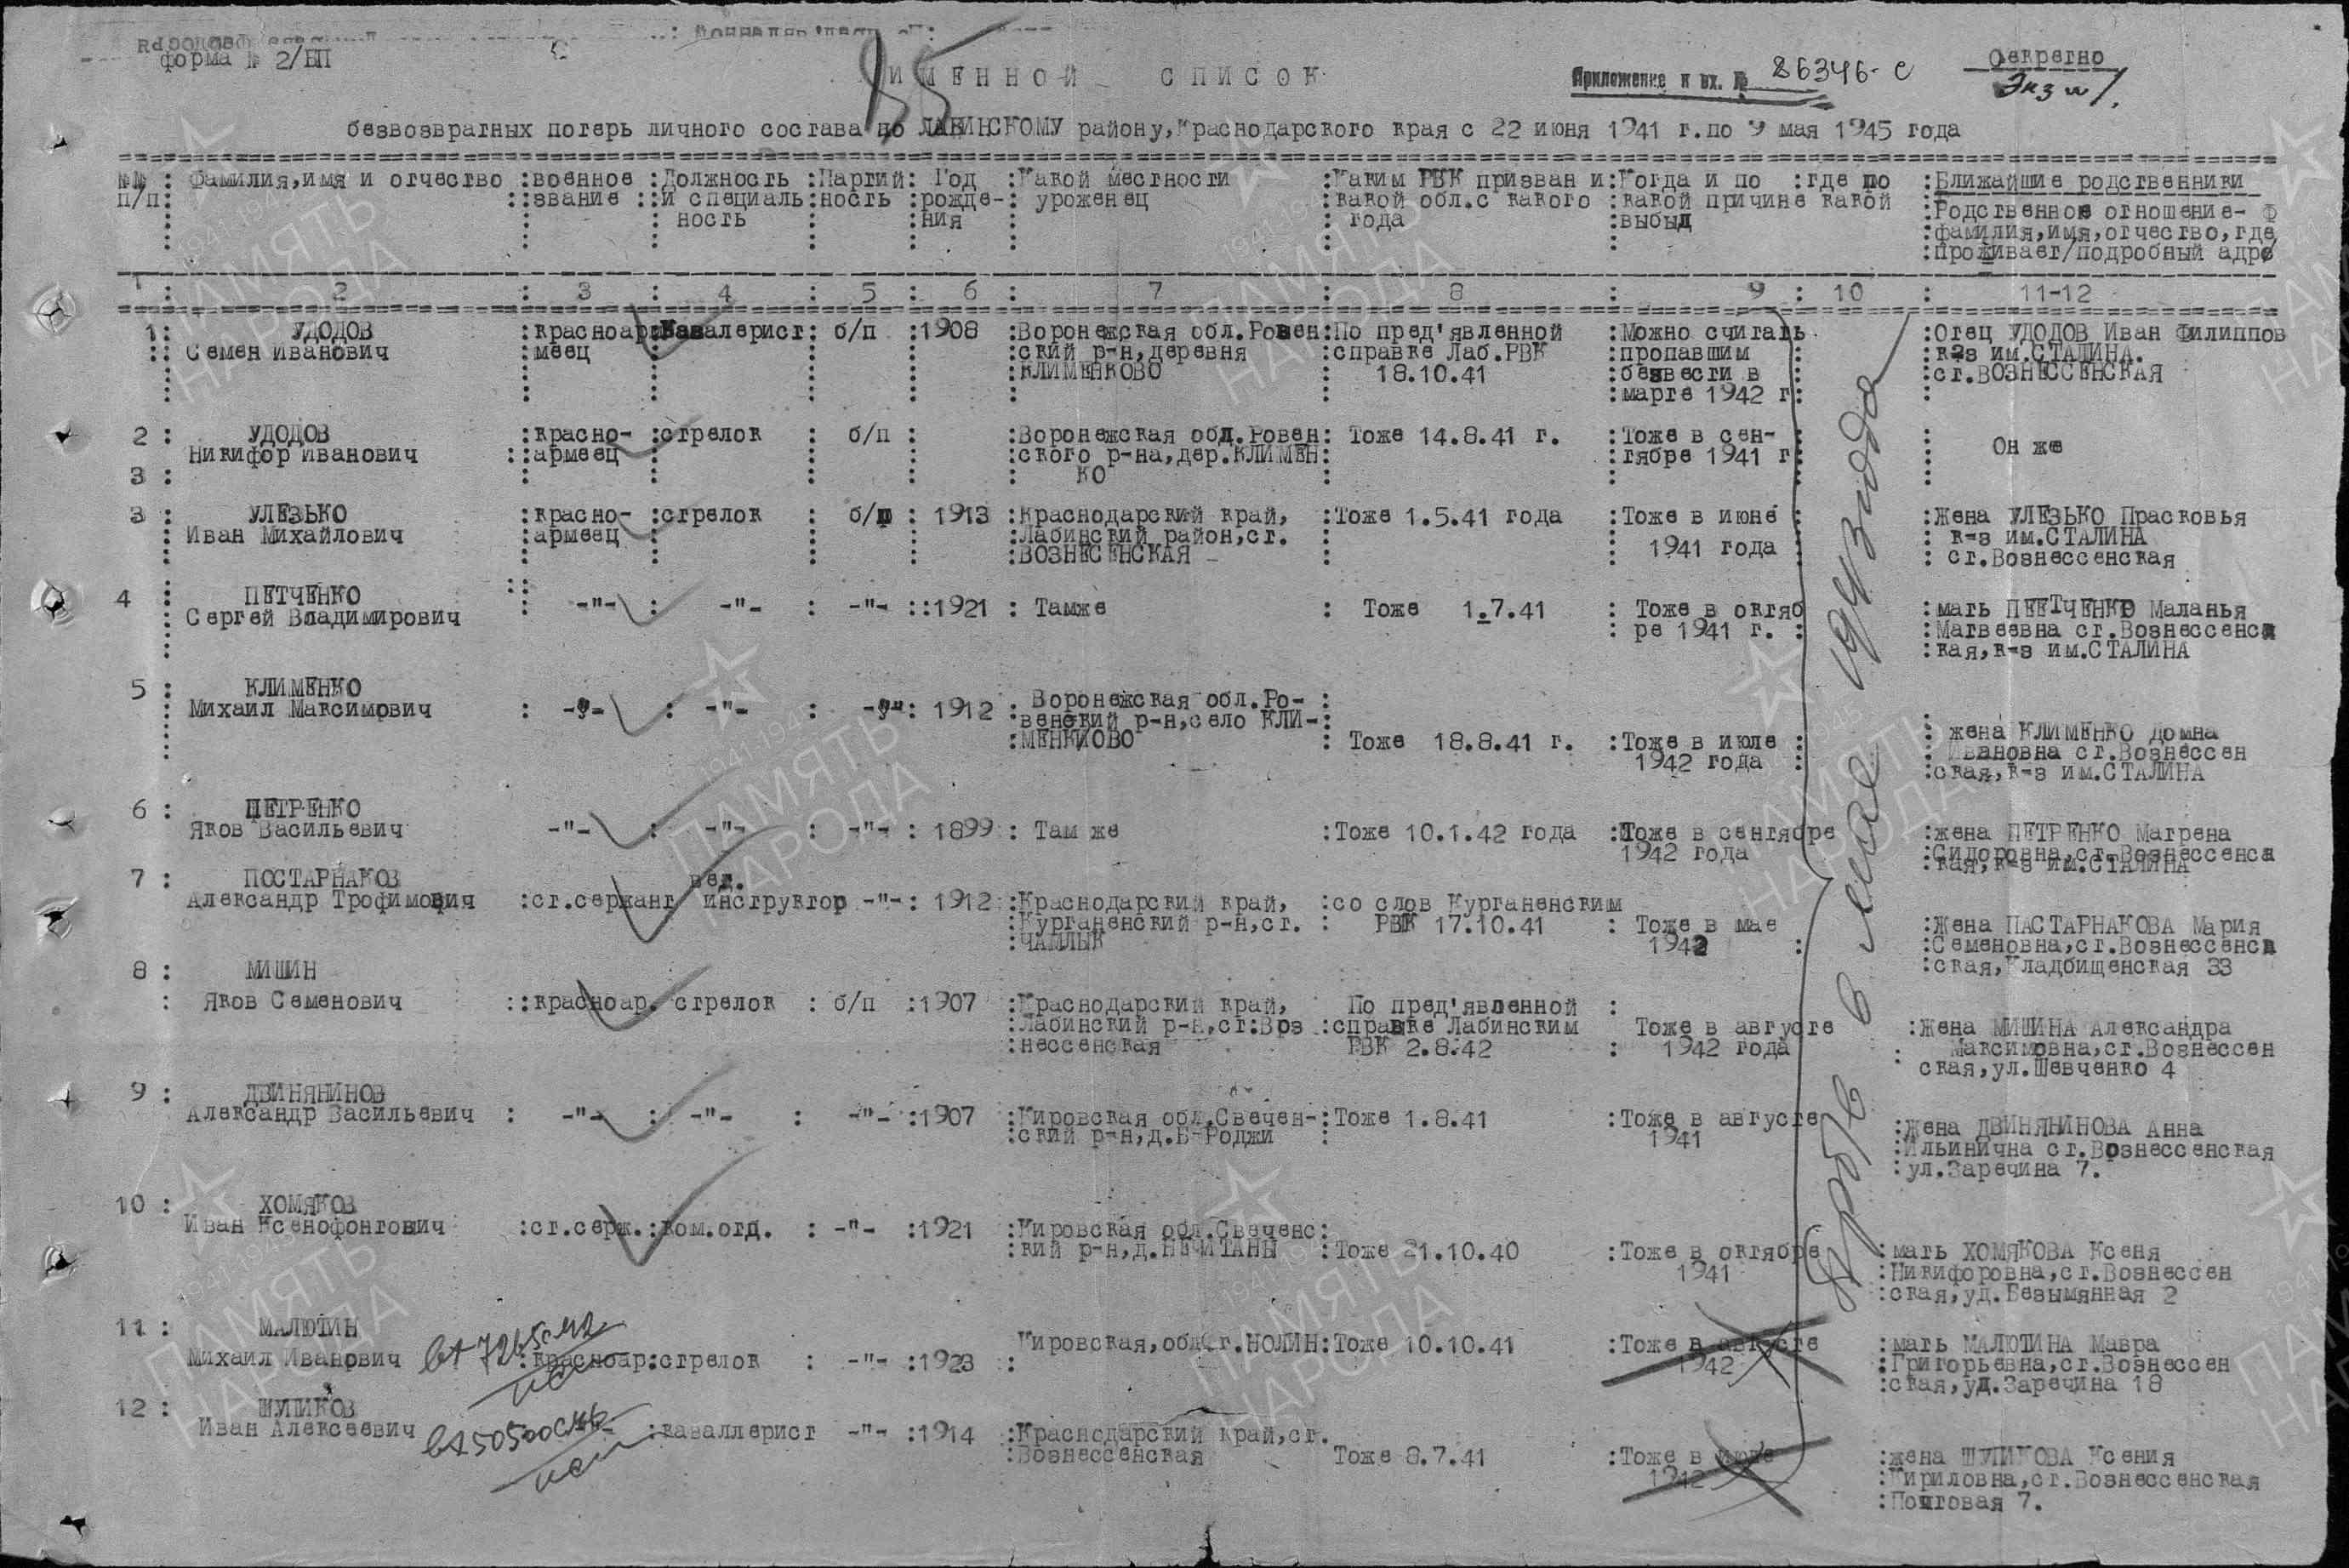 форма № 2/БП
85
ИМЕННОЙ СПИСОК
Приложение к вх. № 86346-с
Секретно
Экз №1.
безвозвратных потерь личного состава по ЛАБИНСКОМУ району,Краснодарского края с 22 июня 1941 г.по 9 мая 1945 года
№№ : Фамилия,имя и отчество :военное :Должность :Партий: Год :Какой местности :Каким РВК призван и:Когда и по :где по :Ближайшие родственники
п/п: ::звание ::И специаль:ность :рожде-: уроженец :какой обл.с какого :какой причине какой :Родственное отношение- ф
: ность : :ния : года :выбыл :фамилия,имя,отчество,где
:проживает/подробный адре
1 : 2 : 3 : 4 : 5 : 6 : 7 : 8 : 9 : 10 : 11-12
1: УДОДОВ :красноарм:Кавалерист: б/п :1908 :Воронежская обл.Ровен:По пред'явленной :Можно считать :Отец УДОДОВ Иван Филиппов
Семен Иванович :меец :ский р-н,деревня :справке Лаб.РВК :пропавшим :к-з им.СТАЛИНА.
:КЛИМЕНКОВО : 18.10.41 :безвести в :ст.ВОЗНЕССЕНСКАЯ
:марте 1942 г:
2 : УДОДОВ :красно- :стрелок : б/п : :Воронежская обл.Ровен: Тоже 14.8.41 г. :Тоже в сен- : Он же
Никифор Иванович ::армеец :ского р-на,дер.КЛИМЕН: :тябре 1941 г
3 : КО
3 : УЛЕЗЬКО :красно- :стрелок : б/п : 1913 :Краснодарский край, :Тоже 1.5.41 года :Тоже в июне :Жена УЛЕЗЬКО Прасковья
Иван Михайлович :армеец :Лабинский район,ст. : 1941 года : к-з им.СТАЛИНА
:ВОЗНЕСЕНСКАЯ : ст.Вознессенская
4 : ПЕТЧЕНКО : -"- : -"- : -"- ::1921 : Тамже : Тоже 1.7.41 : Тоже в октяб :мать ПЕЕТЧЕНКО Маланья
Сергей Владимирович : ре 1941 г. : :Матвеевна ст.Вознессенск
:кая,к-з им.СТАЛИНА
5 : КЛИМЕНКО : Воронежская обл.Ро- :
Михаил Максимович : -"- : -"- : -"-: 1912 :венский р-н,село КЛИ-:
:МЕНКИОВО : Тоже 18.8.41 г. :Тоже в июле : : жена КЛИМЕНКО Домна
1942 года : Ивановна ст.Вознессен
:ская,к-з им.СТАЛИНА
6 : ПЕТРЕНКО
Яков Васильевич -"- : -"- : -"- : 1899 : Там же :Тоже 10.1.42 года :Тоже в сентябре :жена ПЕТРЕНКО Матрена
1942 года :Сидоровна,ст.Вознессенск
:кая,к-з им.СТАЛИНА
7 : ПОСТАРНАКОВ вет.
Александр Трофимович :ст.сержант инструктор -"-: 1912 :Краснодарский край, :со слов Курганенским
:Курганенский р-н,ст. : РВК 17.10.41 : Тоже в мае :Жена ПАСТАРНАКОВА Мария
:ЧАМЛЫК 1942 : :Семеновна,ст.Вознессенск
:ская,Кладбищенская 33
8 : МИШИН
: Яков Семенович ::красноар. стрелок : б/п :1907 :Краснодарский край, По пред'явленной :
:Лабинский р-н,ст:Воз :справке Лабинским Тоже в августе :Жена МИШИНА Александра
:нессенская РВК 2.8.42 : 1942 года : Максимовна,ст.Вознессен
ская,ул.Шевченко 4
9 : ДВИНЯНИНОВ
Александр Васильевич : -"- : -"- : -"- :1907 :Кировская обл.Свечен-:Тоже 1.8.41 :Тоже в августе :Жена ДВИНЯНИНОВА Анна
:ский р-н,д.Б-Роджи : 1941 :Ильинична ст.Вознессенская
:ул.Заречина 7.
10 : ХОМЯКОВ
Иван Ксенофонтович :ст.серж.:ком.отд. : -"- :1921 :Кировская обл.Свеченс:
:кий р-н,д.НЕЧИТАНЫ :Тоже 21.10.40 :Тоже в октябре :мать ХОМЯКОВА Ксеня
1941 :Никифоровна,ст.Вознессен
:ская,ул.Безымянная 2
11 : МАЛЮТИН Кировская,обл.г.НОЛИН:Тоже 10.10.41 :Тоже в августе :мать МАЛЮТИНА Мавра
Михаил Иванович :красноар:стрелок : -"- :1923 : 1942 :Григорьевна,ст.Вознессен
:ская,ул.Заречина 18
12 : ШУПИКОВ
Иван Алексеевич :каваллерист -"- :1914 :Краснодарский край,ст.
:Вознессенская Тоже 8.7.41 :Тоже в июле :жена ШУПИКОВА Ксения
1942 :Кириловна,ст.Вознессенская
:Почтовая 7.
пропб в мае 1943 года
ПАМЯТЬ НАРОДА
1941-1945